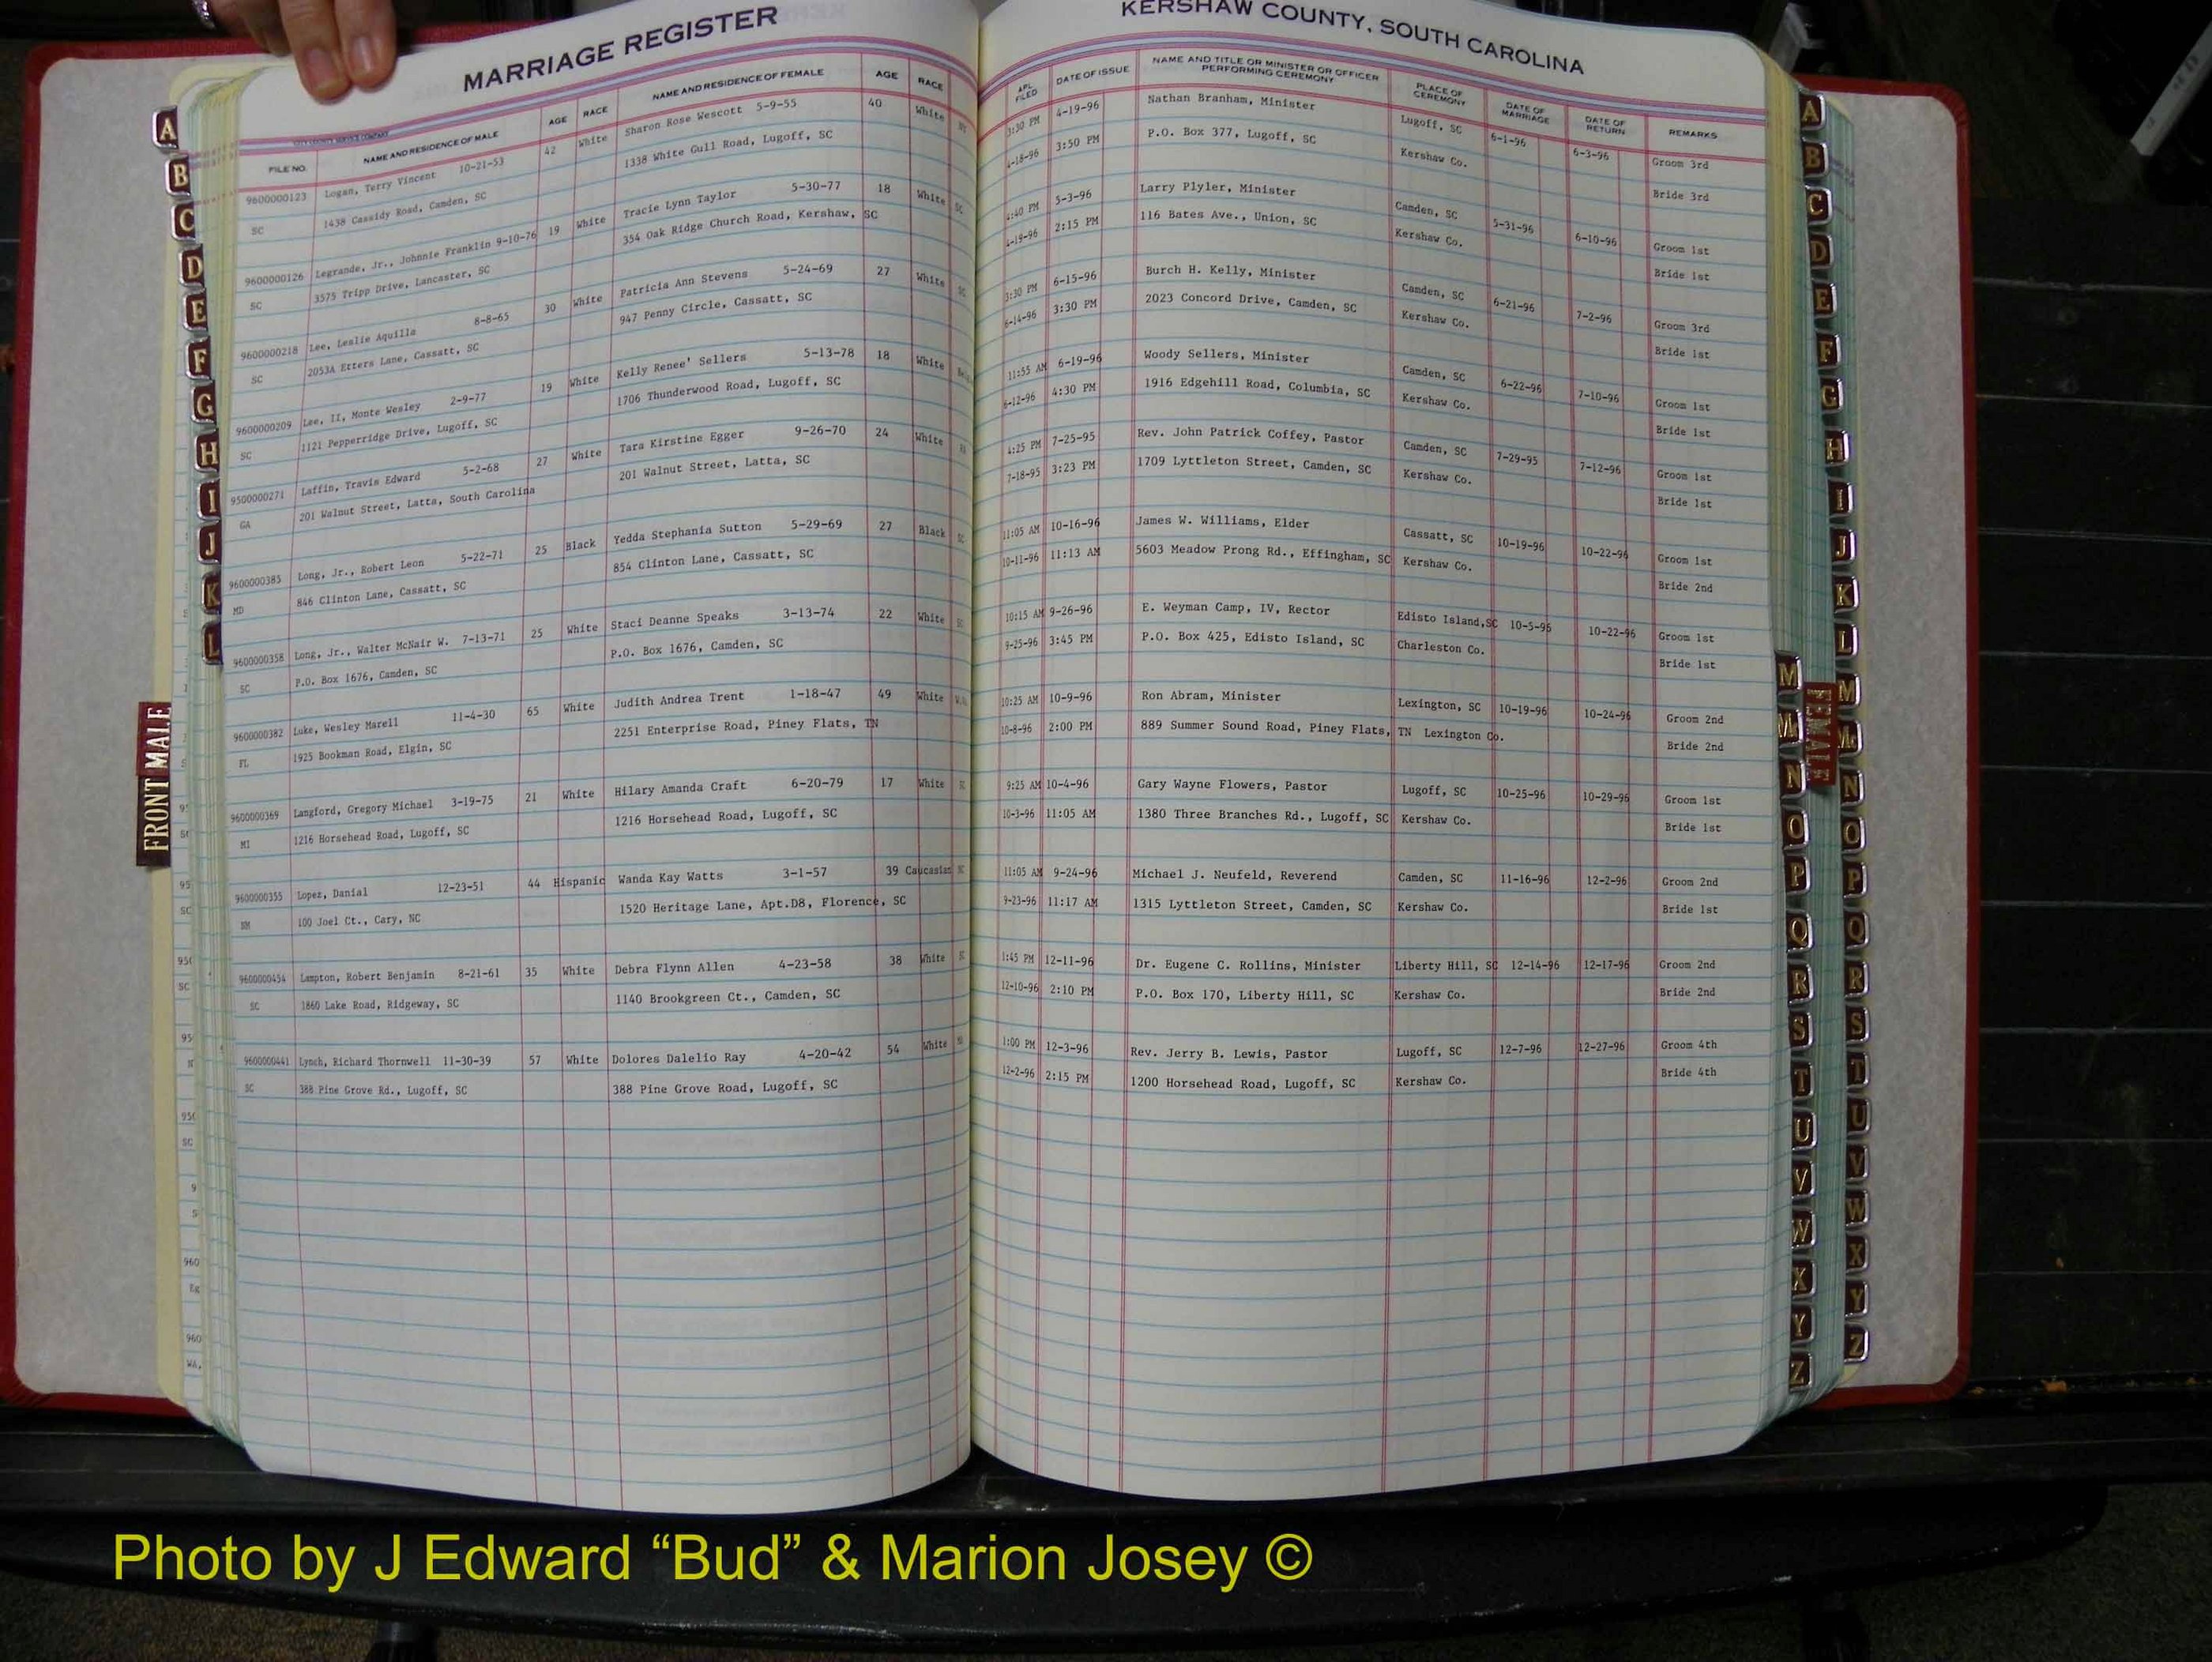 MARRIAGE REGISTER
KERSHAW COUNTY, SOUTH CAROLINA
FILE NO. NAME AND RESIDENCE OF MALE AGE RACE NAME AND RESIDENCE OF FEMALE AGE RACE APL. FILED DATE OF ISSUE NAME AND TITLE OR MINISTER OR OFFICER PERFORMING CEREMONY PLACE OF CEREMONY DATE OF MARRIAGE DATE OF RETURN REMARKS
9600000123 Logan, Terry Vincent 10-21-53 42 White Sharon Rose Wescott 5-9-55 40 White NY 3:30 PM 4-19-96 Nathan Branham, Minister Lugoff, SC 6-1-96 6-3-96 Groom 3rd
SC 1438 Cassidy Road, Camden, SC 1338 White Gull Road, Lugoff, SC 4-18-96 3:50 PM P.O. Box 377, Lugoff, SC Kershaw Co. Bride 3rd
9600000126 Legrande, Jr., Johnnie Franklin 9-10-76 19 White Tracie Lynn Taylor 5-30-77 18 White SC 4:40 PM 5-3-96 Larry Plyler, Minister Camden, SC 5-31-96 6-10-96 Groom 1st
SC 3575 Tripp Drive, Lancaster, SC 354 Oak Ridge Church Road, Kershaw, SC 4-19-96 2:15 PM 116 Bates Ave., Union, SC Kershaw Co. Bride 1st
9600000218 Lee, Leslie Aquilla 8-8-65 30 White Patricia Ann Stevens 5-24-69 27 White SC 3:30 PM 6-15-96 Burch H. Kelly, Minister Camden, SC 6-21-96 7-2-96 Groom 3rd
SC 2053A Etters Lane, Cassatt, SC 947 Penny Circle, Cassatt, SC 6-14-96 3:30 PM 2023 Concord Drive, Camden, SC Kershaw Co. Bride 1st
9600000209 Lee, II, Monte Wesley 2-9-77 19 White Kelly Renee' Sellers 5-13-78 18 White 11:55 AM 6-19-96 Woody Sellers, Minister Camden, SC 6-22-96 7-10-96 Groom 1st
SC 1121 Pepperridge Drive, Lugoff, SC 1706 Thunderwood Road, Lugoff, SC 6-12-96 4:30 PM 1916 Edgehill Road, Columbia, SC Kershaw Co. Bride 1st
9500000271 Laffin, Travis Edward 5-2-68 27 White Tara Kirstine Egger 9-26-70 24 White 4:25 PM 7-25-95 Rev. John Patrick Coffey, Pastor Camden, SC 7-29-95 7-12-96 Groom 1st
GA 201 Walnut Street, Latta, South Carolina 201 Walnut Street, Latta, SC 7-18-95 3:23 PM 1709 Lyttleton Street, Camden, SC Kershaw Co. Bride 1st
9600000385 Long, Jr., Robert Leon 5-22-71 25 Black Yedda Stephania Sutton 5-29-69 27 Black SC 11:05 AM 10-16-96 James W. Williams, Elder Cassatt, SC 10-19-96 10-22-96 Groom 1st
MD 846 Clinton Lane, Cassatt, SC 854 Clinton Lane, Cassatt, SC 10-11-96 11:13 AM 5603 Meadow Prong Rd., Effingham, SC Kershaw Co. Bride 2nd
9600000358 Long, Jr., Walter McNair W. 7-13-71 25 White Staci Deanne Speaks 3-13-74 22 White SC 10:15 AM 9-26-96 E. Weyman Camp, IV, Rector Edisto Island,SC 10-5-96 10-22-96 Groom 1st
SC P.O. Box 1676, Camden, SC P.O. Box 1676, Camden, SC 9-25-96 3:45 PM P.O. Box 425, Edisto Island, SC Charleston Co. Bride 1st
9600000382 Luke, Wesley Marell 11-4-30 65 White Judith Andrea Trent 1-18-47 49 White 10:25 AM 10-9-96 Ron Abram, Minister Lexington, SC 10-19-96 10-24-96 Groom 2nd
FL 1925 Bookman Road, Elgin, SC 2251 Enterprise Road, Piney Flats, TN 10-8-96 2:00 PM 889 Summer Sound Road, Piney Flats, TN Lexington Co. Bride 2nd
9600000369 Langford, Gregory Michael 3-19-75 21 White Hilary Amanda Craft 6-20-79 17 White SC 9:25 AM 10-4-96 Gary Wayne Flowers, Pastor Lugoff, SC 10-25-96 10-29-96 Groom 1st
MI 1216 Horsehead Road, Lugoff, SC 1216 Horsehead Road, Lugoff, SC 10-3-96 11:05 AM 1380 Three Branches Rd., Lugoff, SC Kershaw Co. Bride 1st
9600000355 Lopez, Danial 12-23-51 44 Hispanic Wanda Kay Watts 3-1-57 39 Caucasian 11:05 AM 9-24-96 Michael J. Neufeld, Reverend Camden, SC 11-16-96 12-2-96 Groom 2nd
NM 100 Joel Ct., Cary, NC 1520 Heritage Lane, Apt.D8, Florence, SC 9-23-96 11:17 AM 1315 Lyttleton Street, Camden, SC Kershaw Co. Bride 1st
9600000454 Lampton, Robert Benjamin 8-21-61 35 White Debra Flynn Allen 4-23-58 38 White SC 1:45 PM 12-11-96 Dr. Eugene C. Rollins, Minister Liberty Hill, SC 12-14-96 12-17-96 Groom 2nd
SC 1860 Lake Road, Ridgeway, SC 1140 Brookgreen Ct., Camden, SC 12-10-96 2:10 PM P.O. Box 170, Liberty Hill, SC Kershaw Co. Bride 2nd
9600000441 Lynch, Richard Thornwell 11-30-39 57 White Dolores Dalelio Ray 4-20-42 54 White 1:00 PM 12-3-96 Rev. Jerry B. Lewis, Pastor Lugoff, SC 12-7-96 12-27-96 Groom 4th
SC 388 Pine Grove Rd., Lugoff, SC 388 Pine Grove Road, Lugoff, SC 12-2-96 2:15 PM 1200 Horsehead Road, Lugoff, SC Kershaw Co. Bride 4th
A
B
C
D
E
F
G
H
I
J
K
L
FRONT MALE
M
M
N
O
P
Q
R
S
T
U
V
W
X
Y
Z
FEMALE
A
B
C
D
E
F
G
H
I
J
K
L
M
Mc
N
O
P
Q
R
S
T
U
V
W
X
Y
Z
Photo by J Edward “Bud” & Marion Josey ©